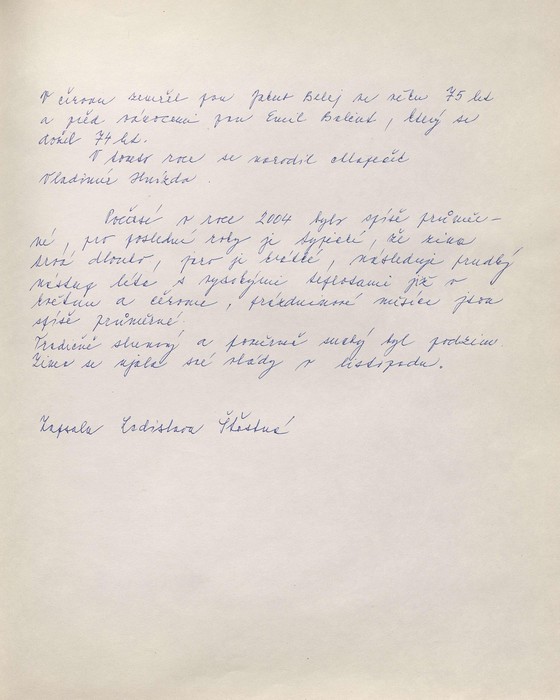 V červnu zemřel pan Jakub Belej ve věku 75 let
a před vánocemi pan Emil Balint, který se
dožil 74 let.
V tomto roce se narodil chlapeček
Vladimír Hnízdo.
Počasí v roce 2004 bylo spíše průměr-
né, pro poslední roky je typické, že zima
trvá dlouho, jaro je krátké, následuje prudký
nástup léta s vysokými teplotami již v
květnu a červnu, prázdninové měsíce jsou
spíše průměrné.
Tradičně slunný a poměrně suchý byl podzim
Zima se ujala své vlády v listopadu.
Zapsala Ladislava Šťastná